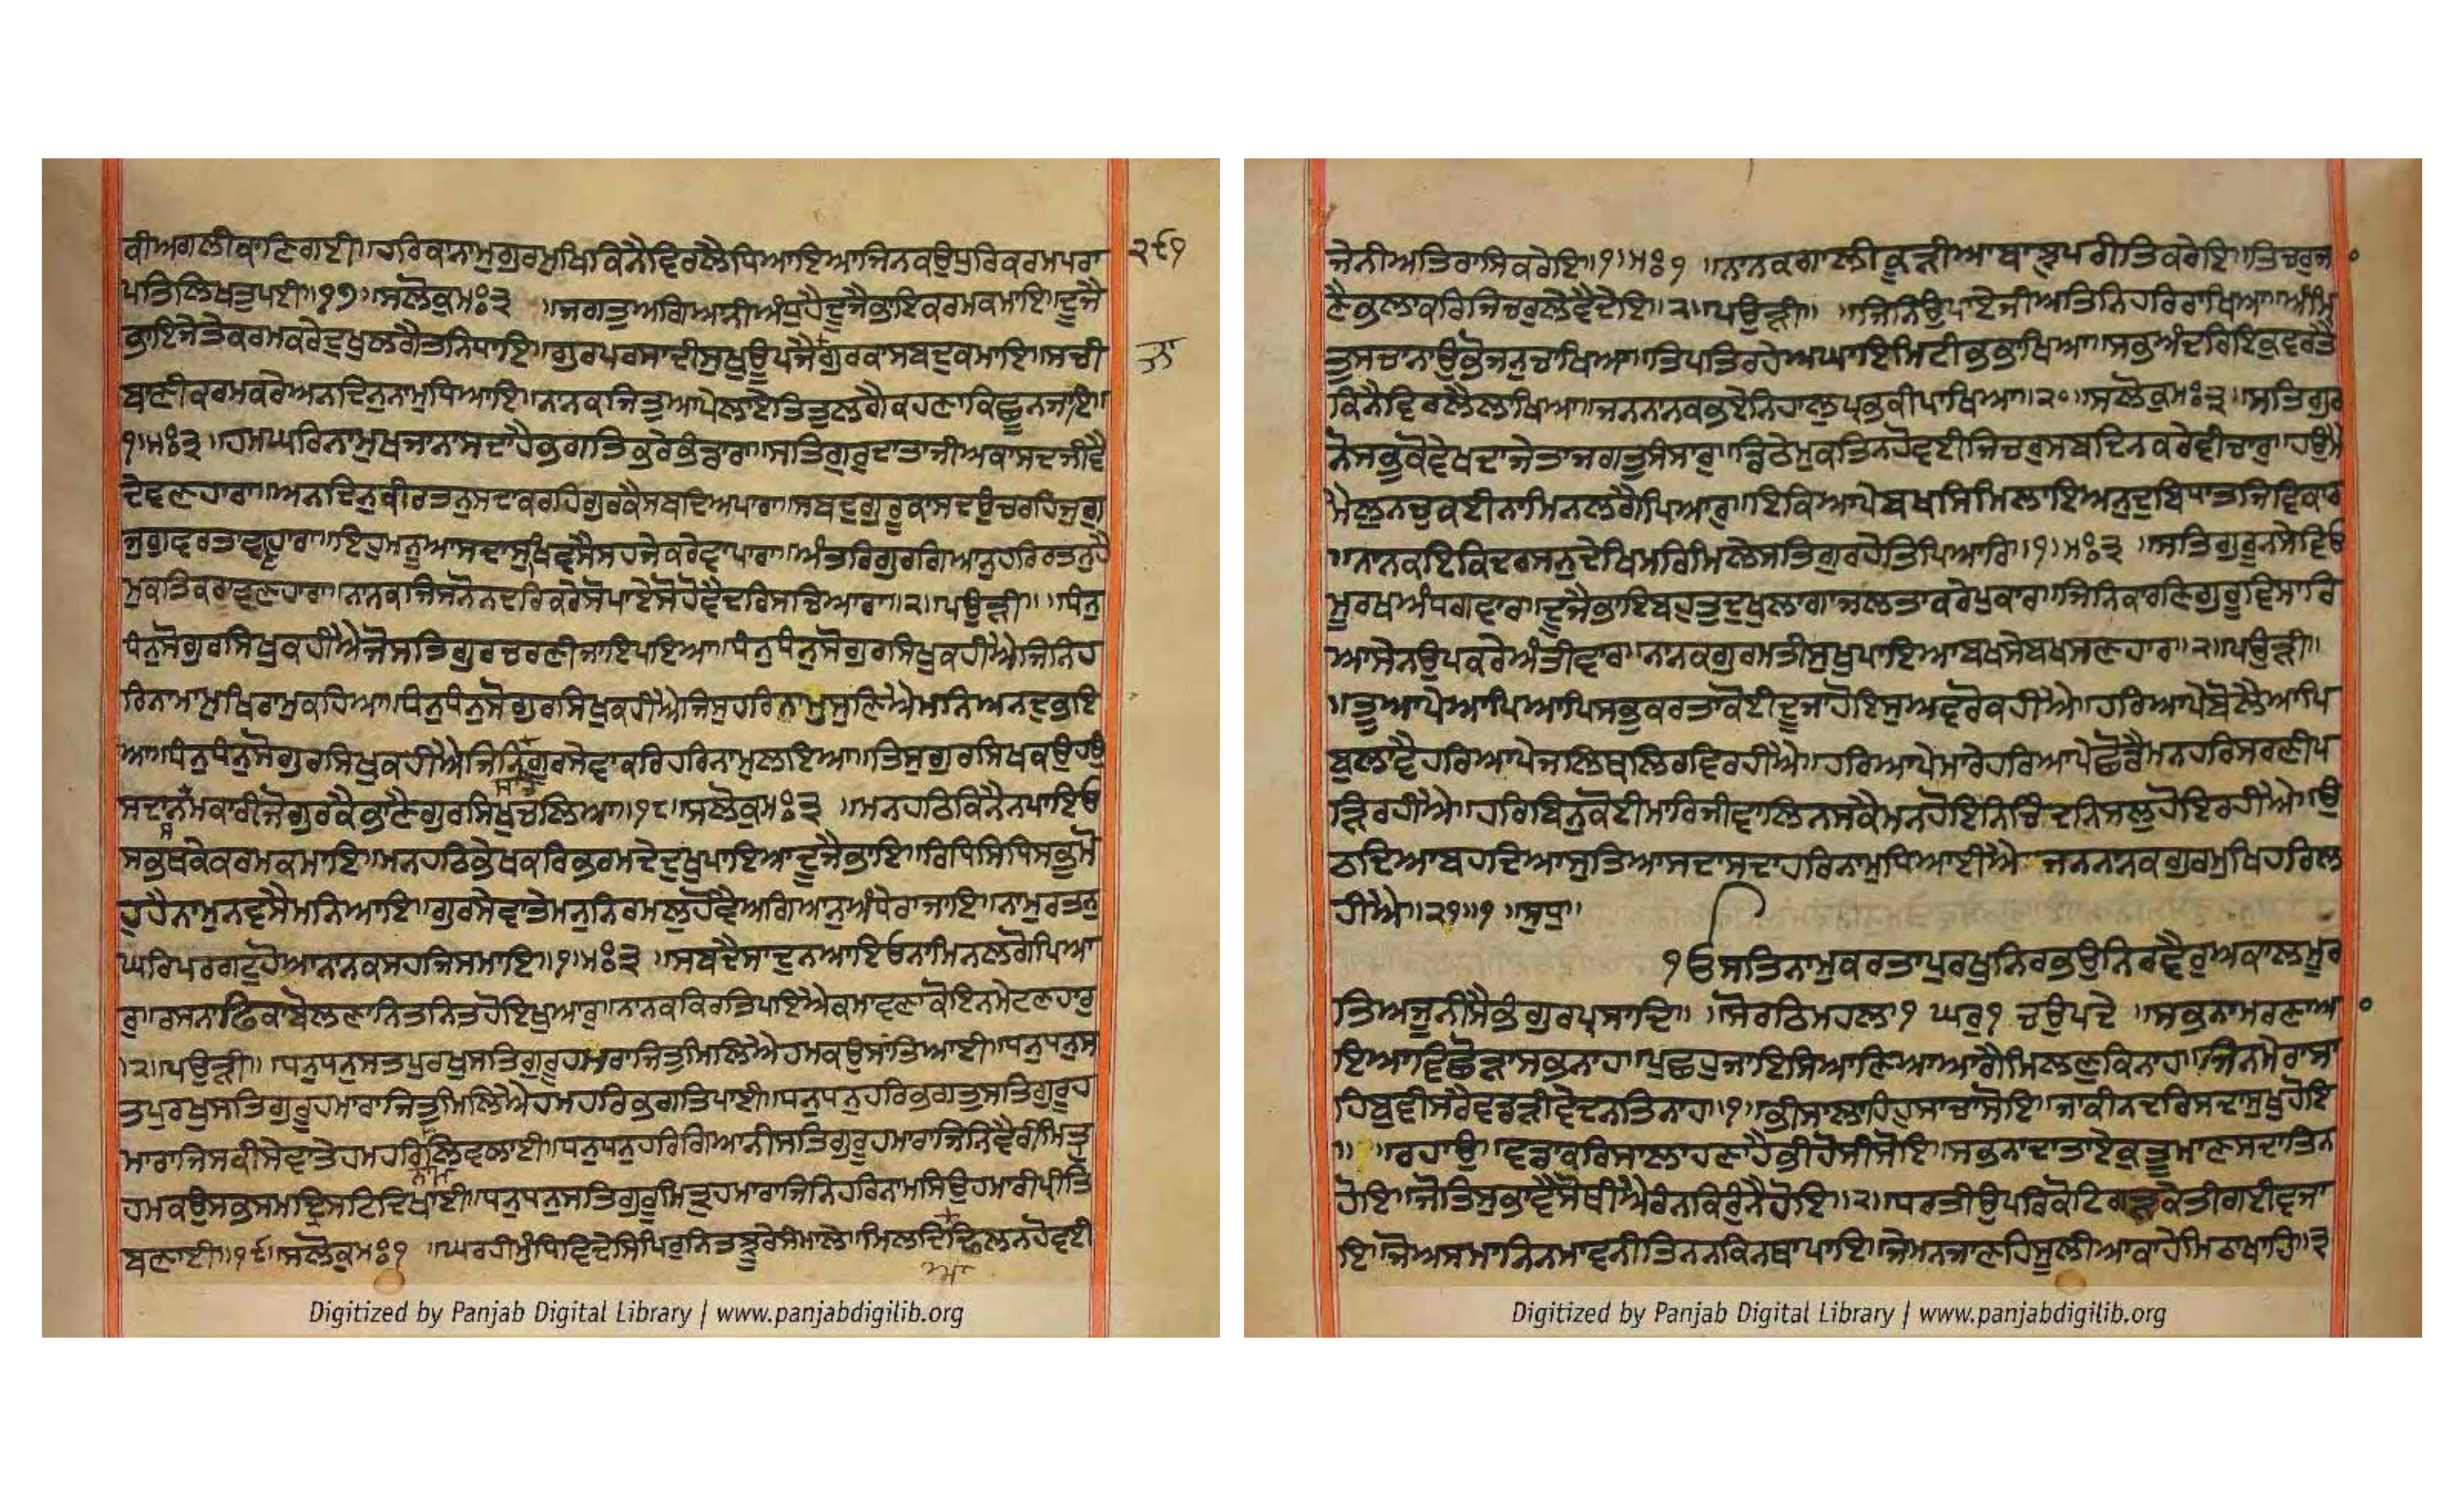 ਕੀਅਗਲੀਕਾਣਿਗਈ॥ਹਰਿਕਾਨਾਮੁਗੁਰਮੁਖਿਕਿਨੈਵਿਰਲੈਧਿਆਇਆਜਿਨਕਉਧੁਰਿਕਰਮਪਰਾ
ਪਤਿਲਿਖਤੁਪਈ॥੧੭॥ਸਲੋਕੁਮਃ੩ ॥ਜਗਤੁਅਗਿਆਨੀਅੰਧੁਹੈਦੂਜੈਭਾਇਕਰਮਕਮਾਇ॥ਦੂਜੈ
ਭਾਇਜੇਤੇਕਰਮਕਰੇਦੁਖੁਲਗੈਤਨਿਧਾਇ॥ਗੁਰਪਰਸਾਦੀਸੁਖੁਊਪਜੈਗੁਰਕਾਸਬਦੁਕਮਾਇ॥ਸਚੀ
ਬਾਣੀਕਰਮਕਰੇਅਨਦਿਨੁਨਾਮੁਧਿਆਇ॥ਨਾਨਕਜਿਤੁਆਪੇਲਾਏਤਿਤੁਲਗੈਕਹਣਾਕਿਛੂਨਜਾਇ॥
੧॥ਮਃ੩ ॥ਹਮਘਰਿਨਾਮੁਖਜਾਨਾਸਦਾਹੈਭਗਤਿਭਰੇਭੰਡਾਰਾ॥ਸਤਿਗੁਰੁਦਾਤਾਜੀਅਕਾਸਦਜੀਵੈ
ਦੇਵਣਹਾਰਾ॥ਅਨਦਿਨੁਕੀਰਤਨੁਸਦਾਕਰਹਿਗੁਰਕੈਸਬਦਿਅਪਾਰਾ॥ਸਬਦੁਗੁਰੂਕਾਸਦਉਚਰਹਿਜੁਗੁ
ਜੁਗੁਵਰਤਾਵਣਹਾਰਾ॥ਇਹੁਮਨੂਆਸਦਾਸੁਖਿਵਸੈਸਹਜੇਕਰੇਵਾਪਾਰਾ॥ਅੰਤਰਿਗੁਰਗਿਆਨੁਹਰਿਰਤਨੁਹੈ
ਮੁਕਤਿਕਰਾਵਣਹਾਰਾ॥ਨਾਨਕਜਿਸਨੋਨਦਰਿਕਰੇਸੋਪਾਏਸੋਹੋਵੈਦਰਿਸਚਿਆਰਾ॥੨॥ਪਉੜੀ॥ ॥ਧੰਨੁ
ਧੰਨੁਸੋਗੁਰਸਿਖੁਕਹੀਐਜੋਸਤਿਗੁਰਚਰਣੀਜਾਇਪਇਆ॥ਧੰਨੁਧੰਨੁਸੋਗੁਰਸਿਖੁਕਹੀਐਜਿਨਿਹ
ਰਿਨਾਮਾਮੁਖਿਰਾਮੁਕਹਿਆ॥ਧੰਨੁਧੰਨੁਸੋਗੁਰਸਿਖੁਕਹੀਐਜਿਸੁਹਰਿਨਾਮੁਸੁਣਿਐਮਨਿਅਨਦੁਭਇ
ਆ॥ਧੰਨੁਧੰਨੁਸੋਗੁਰਸਿਖੁਕਹੀਐਜਿਨਿਗੁਰਸੇਵਾਕਰਿਹਰਿਨਾਮੁਲਇਆ॥ਤਿਸੁਗੁਰਸਿਖਕਉਹਉ
ਸਦਾਨਮਸਕਾਰੀਜੋਗੁਰਕੈਭਾਣੈਗੁਰਸਿਖੁਚਲਿਆ॥੧੮॥ਸਲੋਕੁਮਃ੩ ॥ਮਨਹਠਿਕਿਨੈਨਪਾਇਓ
ਸਭਥਕੇਕਰਮਕਮਾਇ॥ਮਨਹਠਿਭੇਖਕਰਿਭਰਮਦੇਦੁਖੁਪਾਇਆਦੂਜੈਭਾਇ॥ਰਿਧਿਸਿਧਿਸਭੁਮੋ
ਹੁਹੈਨਾਮੁਨਵਸੈਮਨਿਆਇ॥ਗੁਰਸੇਵਾਤੇਮਨੁਨਿਰਮਲੁਹੋਵੈਅਗਿਆਨੁਅੰਧੇਰਾਜਾਇ॥ਨਾਮੁਰਤਨੁ
ਘਰਿਪਰਗਟੁਹੋਆਨਾਨਕਸਹਜਿਸਮਾਇ॥੧॥ਮਃ੩ ॥ਸਬਦੈਸਾਦੁਨਆਇਓਨਾਮਿਨਲਗੋਪਿਆ
ਰੁ॥ਰਸਨਾਫਿਕਾਬੋਲਣਾਨਿਤਨਿਤਹੋਇਖੁਆਰੁ॥ਨਾਨਕਕਿਰਤਿਪਇਐਕਮਾਵਣਾਕੋਇਨਮੇਟਣਹਾਰੁ
॥੨॥ਪਉੜੀ॥ ॥ਧਨੁਧਨੁਸਤਪੁਰਖੁਸਤਿਗੁਰੂਹਮਾਰਾਜਿਤੁਮਿਲਿਐਹਮਕਉਸਾਂਤਿਆਈ॥ਧਨੁਧਨੁਸ
ਤਪੁਰਖੁਸਤਿਗੁਰੂਹਮਾਰਾਜਿਤੁਮਿਲਿਐਹਮਹਰਿਭਗਤਿਪਾਈ॥ਧਨੁਧਨੁਹਰਿਭਗਤੁਸਤਿਗੁਰੂਹ
ਮਾਰਾਜਿਸਕੀਸੇਵਾਤੇਹਮਹਰਿਲਿਵਲਾਈ॥ਧਨੁਧਨੁਹਰਿਗਿਆਨੀਸਤਿਗੁਰੂਹਮਾਰਾਜਿਨਿਵੈਰੀਮਿਤ੍ਰੁ
ਹਮਕਉਸਭਸਮਦ੍ਰਿਸਟਿਦਿਖਾਈ॥ਧਨੁਧਨੁਸਤਿਗੁਰੂਮਿਤ੍ਰੁਹਮਾਰਾਜਿਨਿਹਰਿਨਾਮਸਿਉਹਮਾਰੀਪ੍ਰੀਤਿ
ਬਣਾਈ॥੧੯॥ਸਲੋਕੁਮਃ੧ ॥ਘਰਹੀਮੁੰਧਿਵਿਦੇਸਿਪਿਰੁਨਿਤਝੂਰੇਸੰਮਾਲੇ॥ਮਿਲਦਿਆਢਿਲਨਹੋਵਈ
੨੯੧
ਜੇਨੀਅਤਿਰਾਸਿਕਰੇਇ॥੧॥ਮਃ੧ ॥ਨਾਨਕਗਾਲੀਕੂੜੀਆਬਾਝੁਪਰੀਤਿਕਰੇਇ॥ਤਿਚਰੁਜਾ
ਣੈਭਲਾਕਰਿਜਿਚਰੁਲੇਵੈਦੇਇ॥੨॥ਪਉੜੀ॥ ॥ਜਿਨਿਉਪਾਏਜੀਅਤਿਨਿਹਰਿਰਾਖਿਆ॥ਅੰਮ੍ਰਿ
ਤੁਸਚਾਨਾਉਭੋਜਨੁਚਾਖਿਆ॥ਤਿਪਤਿਰਹੇਆਘਾਇਮਿਟੀਭਭਾਖਿਆ॥ਸਭਅੰਦਰਿਇਕੁਵਰਤੈ
ਕਿਨੈਵਿਰਲੈਲਾਖਿਆ॥ਜਨਨਾਨਕਭਏਨਿਹਾਲੁਪ੍ਰਭਕੀਪਾਖਿਆ॥੨੦॥ਸਲੋਕੁਮਃ੩॥ਸਤਿਗੁਰ
ਨੋਸਭੁਕੋਵੇਖਦਾਜੇਤਾਜਗਤੁਸੰਸਾਰੁ॥ਡਿਠੈਮੁਕਤਿਨਹੋਵਈਜਿਚਰੁਸਬਦਿਨਕਰੇਵੀਚਾਰੁ॥ਹਉਮੈ
ਮੈਲੁਨਚੁਕਈਨਾਮਿਨਲਗੈਪਿਆਰੁ॥ਇਕਿਆਪੇਬਖਸਿਮਿਲਾਇਅਨੁਦੁਬਿਧਾਤਜਿਵਿਕਾਰ
॥ਨਾਨਕਇਕਿਦਰਸਨੁਦੇਖਿਮਰਿਮਿਲੇਸਤਿਗੁਰਹੇਤਿਪਿਆਰਿ॥੧॥ਮਃ੩ ॥ਸਤਿਗੁਰੂਨਸੇਵਿਓ
ਮੂਰਖਅੰਧਗਵਾਰਾ॥ਦੂਜੈਭਾਇਬਹੁਤੁਦੁਖੁਲਾਗਾਜਲਤਾਕਰੇਪੁਕਾਰਾ॥ਜਿਨਿਕਾਰਣਿਗੁਰੂਵਿਸਾਰਿ
ਆਸੇਨਉਪਕਰੇਅੰਤੀਵਾਰਾ॥ਨਾਨਕਗੁਰਮਤੀਸੁਖੁਪਾਇਆਬਖਸੇਬਖਸਣਹਾਰਾ॥੨॥ਪਉੜੀ॥
॥ਤੂਆਪੇਆਪਿਆਪਿਸਭੁਕਰਤਾਕੋਈਦੂਜਾਹੋਇਸੁਅਵਰੋਕਹੀਐ॥ਹਰਿਆਪੇਬੋਲੈਆਪਿ
ਬੁਲਾਵੈਹਰਿਆਪੇਜਲਿਥਲਿਰਵਿਰਹੀਐ॥ਹਰਿਆਪੇਮਾਰੇਹਰਿਆਪੇਛੋਡੈਮਨਹਰਿਸਰਣੀਪ
ੜਿਰਹੀਐ॥ਹਰਿਬਿਨੁਕੋਈਮਾਰਿਜੀਵਾਲਿਨਸਕੈਮਨਹੋਇਨਿਚਿੰਦਨਿਸਲੁਹੋਇਰਹੀਐ॥ਉ
ਠਦਿਆਬਹਦਿਆਸੁਤਿਆਸਦਾਸਦਾਹਰਿਨਾਮੁਧਿਆਈਐ ਜਨਨਾਨਕਗੁਰਮੁਖਿਹਰਿਲ
ਹੀਐ॥੨੧॥੧ ॥ਸੁਧੁ॥
ੴਸਤਿਨਾਮੁਕਰਤਾਪੁਰਖੁਨਿਰਭਉਨਿਰਵੈਰੁਅਕਾਲਮੂਰ
ਤਿਅਜੂਨੀਸੈਭੰਗੁਰਪ੍ਰਸਾਦਿ॥ ॥ਸੋਰਠਿਮਹਲਾ੧ ਘਰੁ੧ ਚਉਪਦੇ ॥ਸਭਨਾਮਰਣਾਆ
ਇਆਵਿਛੋੜਾਸਭਨਾਹ॥ਪੁਛਹੁਜਾਇਸਿਆਣਿਆਆਗੈਮਿਲਣੁਕਿਨਾਹ॥ਜਿਨਮੇਰਾਸਾ
ਹਿਬੁਵੀਸਰੈਵਡੜੀਵੇਦਨਤਿਨਾਹ॥੧॥ਭੀਸਾਲਾਹਿਹੁਸਾਚਾਸੋਇ॥ਜਾਕੀਨਦਰਿਸਦਾਸੁਖੁਹੋਇ
॥ ॥ਰਹਾਉ॥ਵਡਾਕਰਿਸਾਲਾਹਣਾਹੈਭੀਹੋਸੀਸੋਇ॥ਸਭਨਾਦਾਤਾਏਕੁਤੂਮਾਣਸਦਾਤਿਨ
ਹੋਇ॥ਜੋਤਿਸੁਭਾਵੈਸੋਥੀਐਰੰਨਕਿਰੁੰਨੈਹੋਇ॥੨॥ਧਰਤੀਉਪਰਿਕੋਟਿਗੜਕੇਤੀਗਈਵਜਾ
ਇ॥ਜੋਅਸਮਾਨਿਨਮਾਵਨੀਤਿਨਨਕਿਨਥਾਪਾਇ॥ਜੇਮਨਜਾਣਹਿਸੂਲੀਆਕਾਹੇਮਿਠਾਖਾਹਿ॥੩
Digitized by Panjab Digital Library | www.panjabdigilib.org
Digitized by Panjab Digital Library | www.panjabdigilib.org